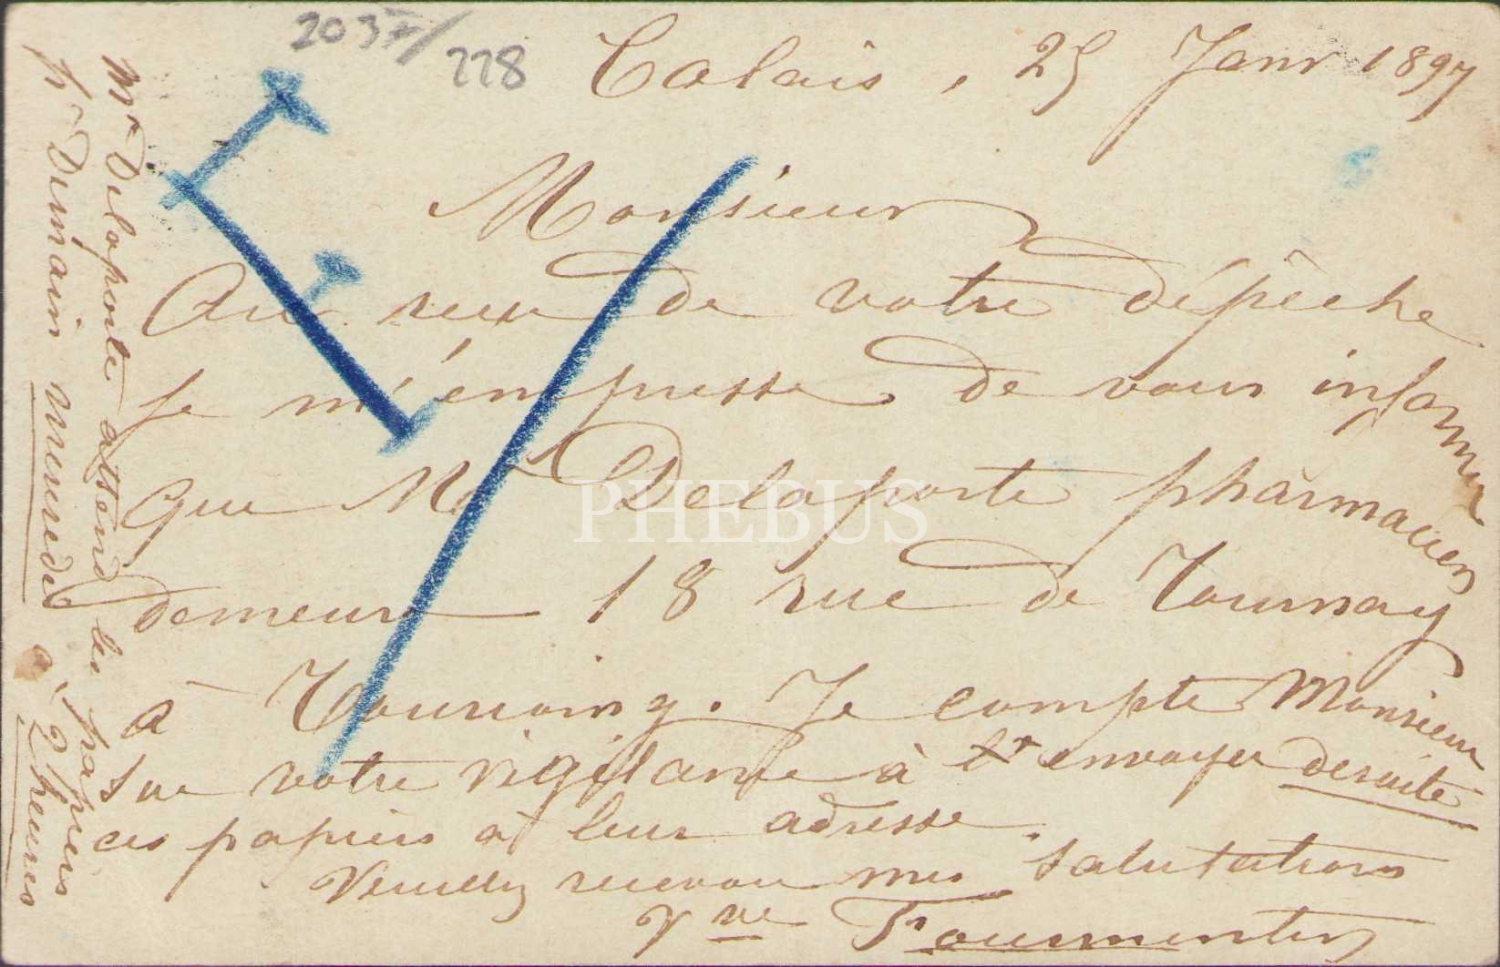 203 /
228
Calais, 25 Janv 1897
Monsieur
Au reçu de votre dépêche
Je m'empresse de vous informer
que Mr Delaporte pharmacien
demeure 18 rue de Tournay
à Tourcoing. Je compte Monsieur
sur votre vigilance à envoyer desuite
ces papiers à leur adresse.
Veuillez recevoir mes salutations
Vve Tourmentin
Mr Delaporte attend les papiers
pr Demain mercredi à 2 heures
PHEBUS